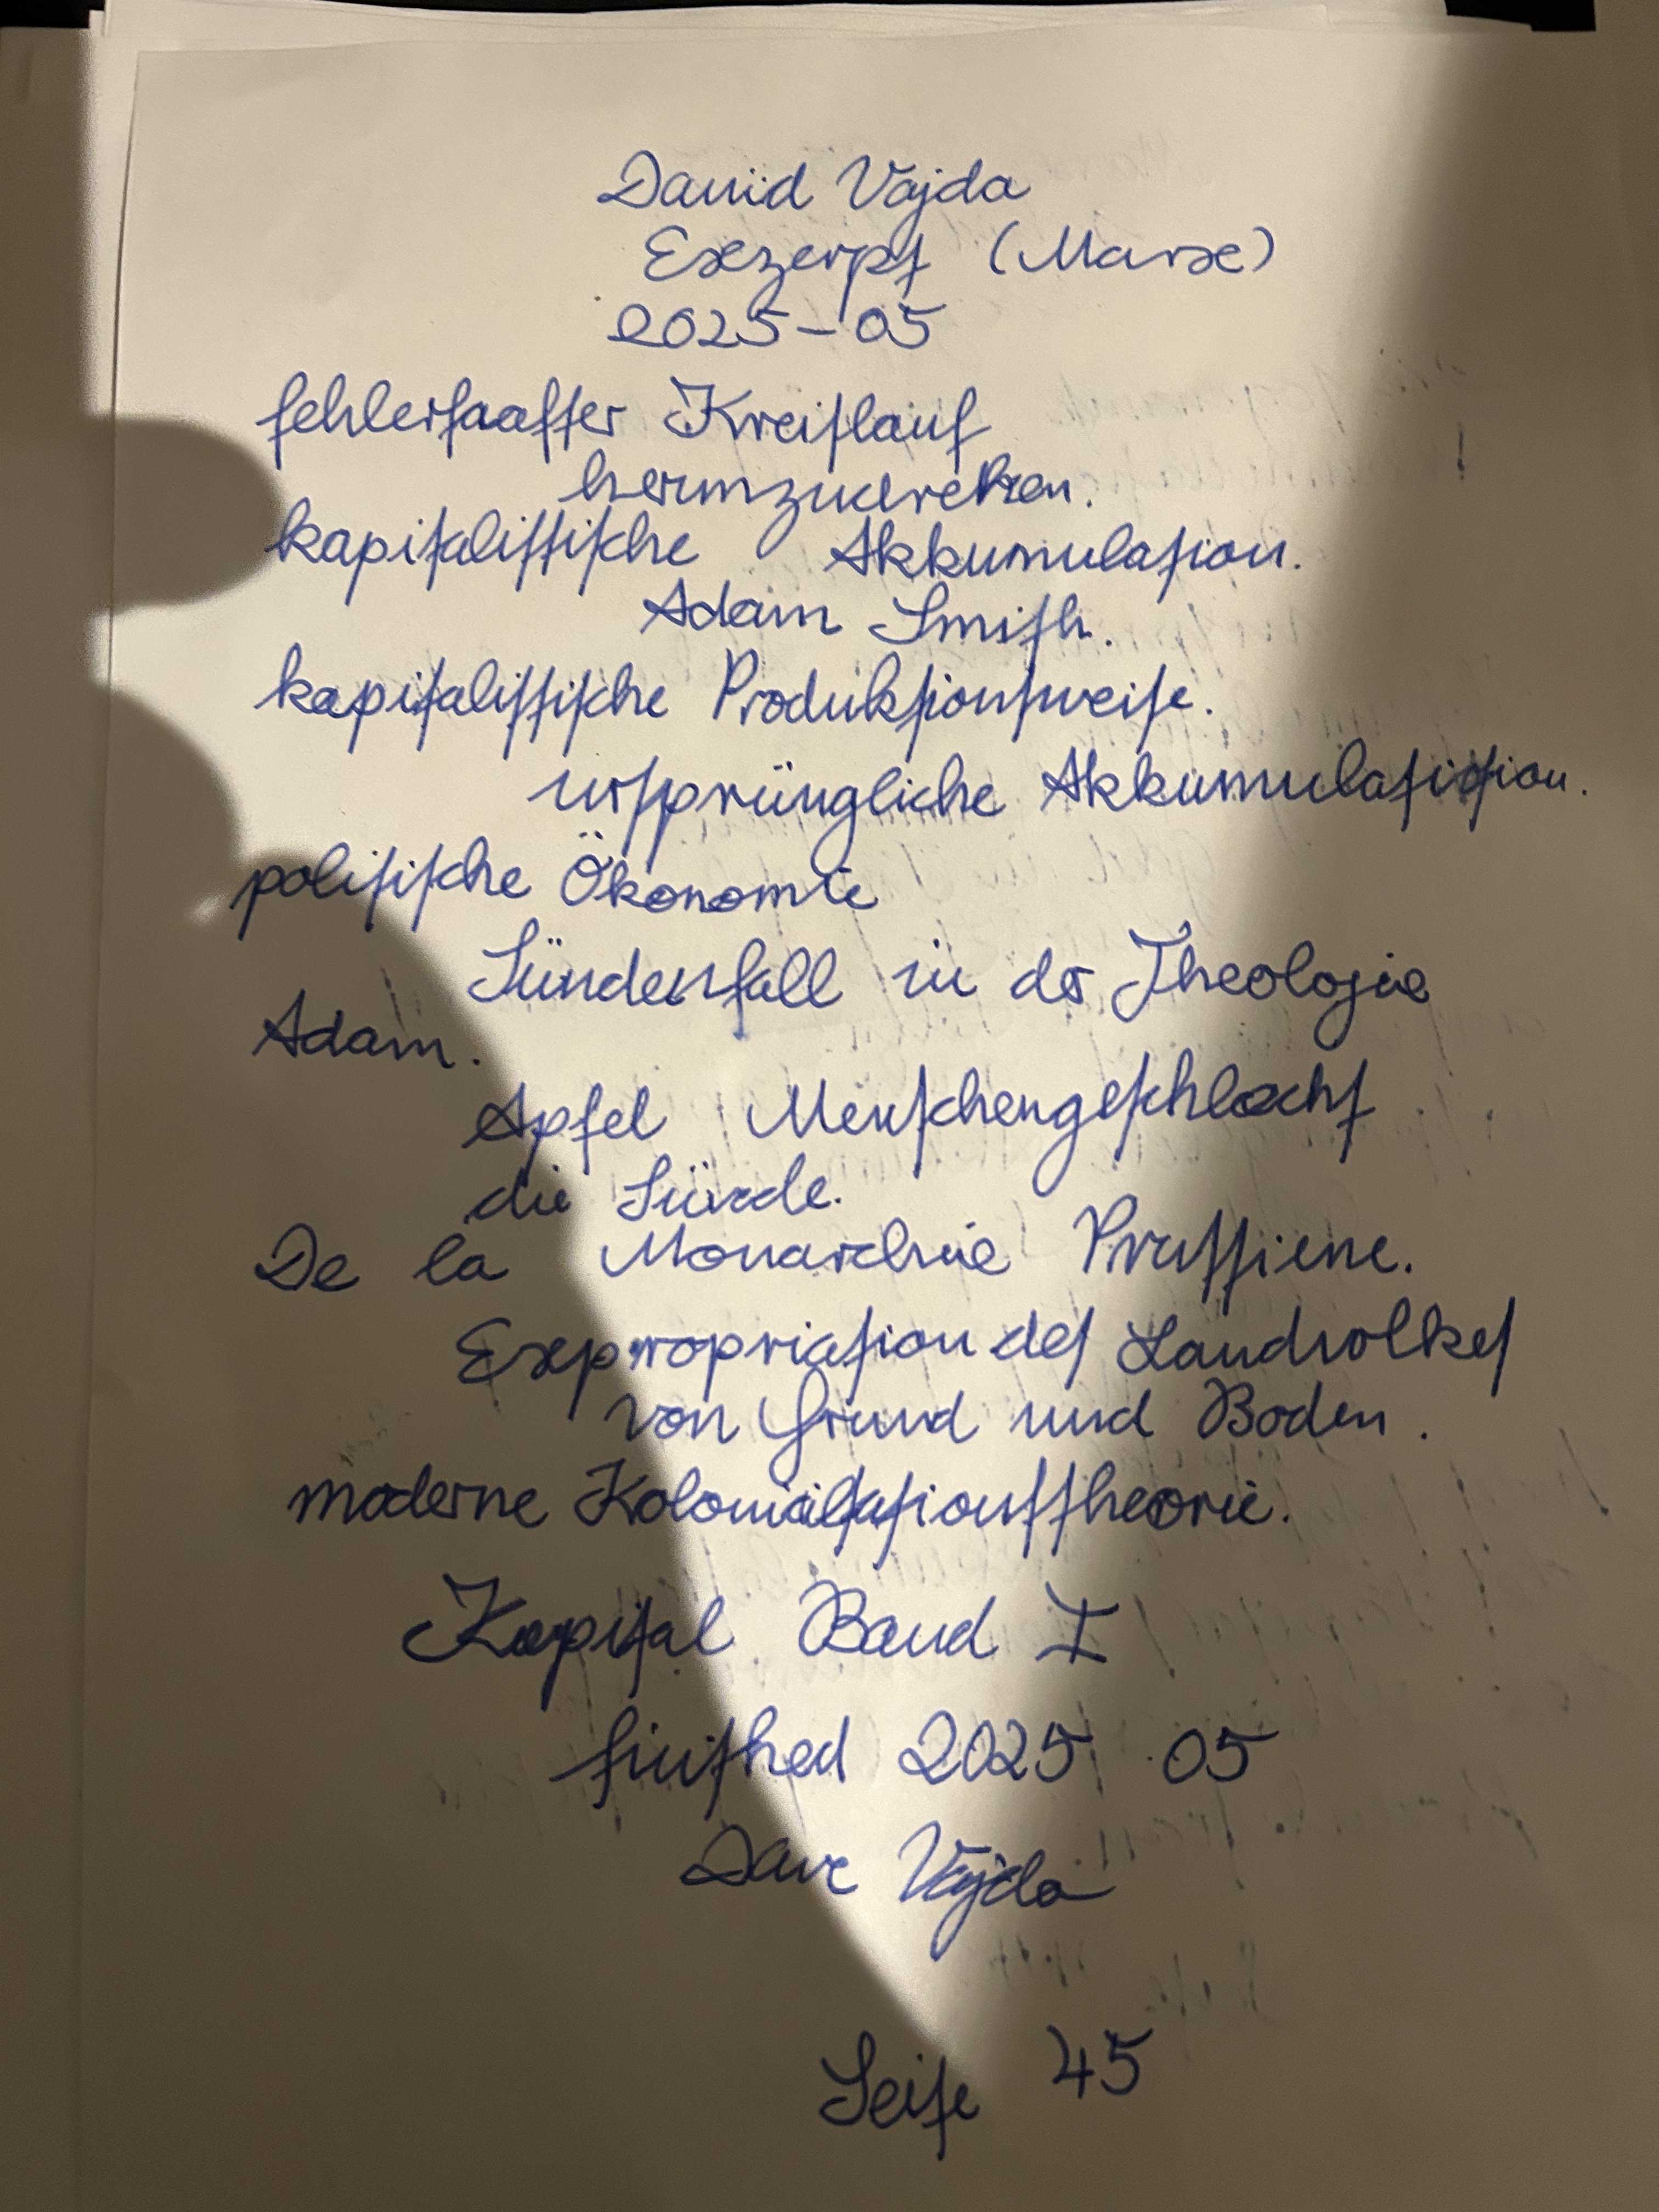 David Vajda
Exzerpt (Marx)
2025-05
fehlerhafter Kreislauf
herumzudrehen.
kapitalistische Akkumulation.
Adam Smith.
kapitalistische Produktionsweise.
ursprüngliche Akkumulation.
politische Ökonomie
Sündenfall in der Theologie
Adam.
Apfel Menschengeschlecht
die Sünde.
De la Monarchie Prussiene.
Expropriation des Landvolkes
von Grund und Boden.
moderne Kolonialisationstheorie.
Kapital Band I
finished 2025 05
Dave Vajda
Seite 45